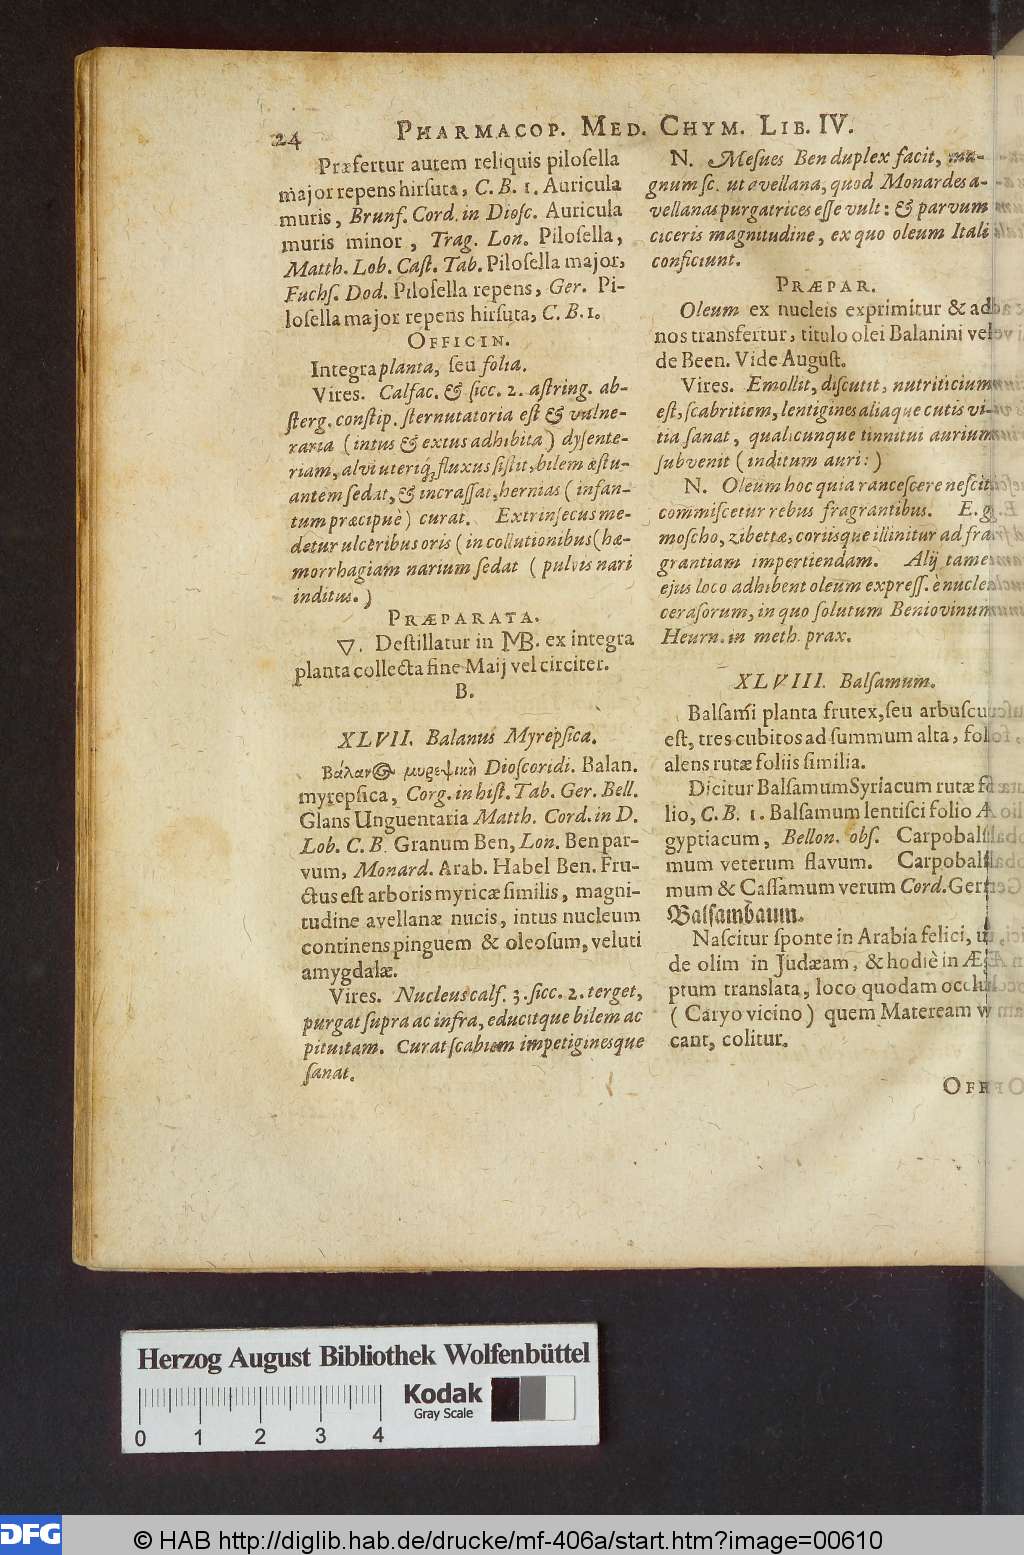 24 PHARMACOP. MED. CHYM. LIB. IV.
Præfertur autem reliquis piloſella
major repens hirſuta, C. B. 1. Auricula
muris, Brunf. Cord. in Dioſc. Auricula
muris minor, Trag. Lon. Piloſella,
Matth. Lob. Caſt. Tab. Piloſella major,
Fuchſ. Dod. Piloſella repens, Ger. Pi-
loſella major repens hirſuta, C. B. 1.
OFFICIN.
Integra planta, ſeu folia.
Vires. Calfac. & ſicc. 2. aſtring. ab-
ſterg. conſtip. ſternutatoria eſt & vulne-
raria (intus & extus adhibita) dyſente-
riam, alvi uteriq́; fluxus ſiſtit, bilem æſtu-
antem ſedat, & incraſſat, hernias (infan-
tum præcipuè) curat. Extrinſecus me-
detur ulceribus oris (in collutionibus (hæ-
morrhagiam narium ſedat (pulvis nari
inditus.)
PRÆPARATA.
▽. Deſtillatur in MB. ex integra
planta collecta fine Maij vel circiter.
B.
XLVII. Balanus Myrepſica.
Βάλαν(Ος) μυρεψικὴ Dioſcoridi. Balan.
myrepſica, Corg. in hiſt. Tab. Ger. Bell.
Glans Unguentaria Matth. Cord. in D.
Lob. C. B. Granum Ben, Lon. Ben par-
vum, Monard. Arab. Habel Ben. Fru-
ctus eſt arboris myricæ ſimilis, magni-
tudine avellanæ nucis, intus nucleum
continens pinguem & oleoſum, veluti
amygdalæ.
Vires. Nucleus calf. 3. ſicc. 2. terget,
purgat ſupra ac infra, educitque bilem ac
pituitam. Curat ſcabiem impetigineſque
ſanat.
N. Meſues Ben duplex facit, ma-
gnum ſc. ut avellana, quod Monardes a-
vellanas purgatrices eſſe vult: & parvum
ciceris magnitudine, ex quo oleum Itali
conficiunt.
PRÆPAR.
Oleum ex nucleis exprimitur & ad
nos transfertur, titulo olei Balanini vel
de Been. Vide Auguſt.
Vires. Emollit, diſcutit, nutriticium
eſt, ſcabritiem, lentigines aliaque cutis vi-
tia ſanat, qualicunque tinnitui aurium
ſubvenit (inditum auri:)
N. Oleum hoc quia ranceſcere neſcit
commiſcetur rebus fragrantibus. E. g.
moſcho, zibettæ, coriisque illinitur ad fra-
grantiam impertiendam. Alij tamen
ejus loco adhibent oleum expreſſ. è nucleis
ceraſorum, in quo ſolutum Beniovinum
Heurn. in meth. prax.
XLVIII. Balſamum.
Balſami planta frutex, ſeu arbuſcu
eſt, tres cubitos ad ſummum alta, fol
alens rutæ foliis ſimilia.
Dicitur Balſamum Syriacum rutæ fo
lio, C. B. 1. Balſamum lentiſci folio Æ
gyptiacum, Bellon. obſ. Carpobalſa
mum veterum flavum. Carpobalſa
mum & Caſſamum verum Cord. Ger.
Balſambaum.
Naſcitur ſponte in Arabia felici,
de olim in Judæam, & hodiè in Ægy
ptum translata, loco quodam occluſ
(Cayro vicino) quem Mateream
cant, colitur.
OFFI
Herzog August Bibliothek Wolfenbüttel
Kodak
Gray Scale
0 1 2 3 4
DFG © HAB http://diglib.hab.de/drucke/mf-406a/start.htm?image=00610